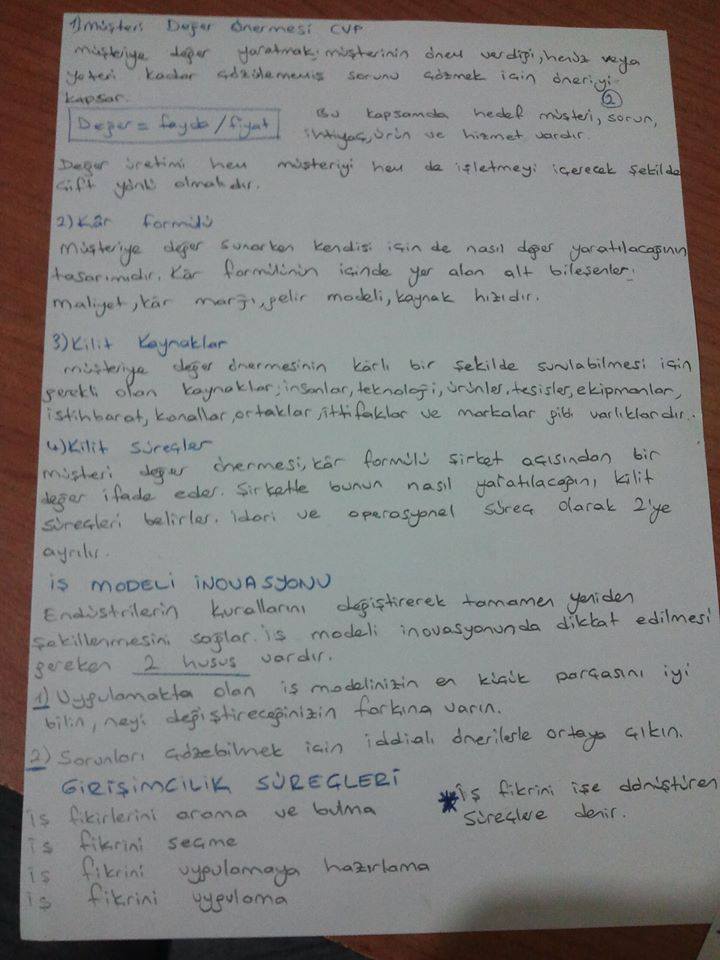 1) Müşteri Değer Önermesi CVP
Müşteriye değer yaratmak; müşterinin önem verdiği, henüz veya
yeteri kadar çözülememiş sorunu çözmek için öneriyi
kapsar.
2
Değer = fayda / fiyat
Bu kapsamda hedef müşteri, sorun,
ihtiyaç, ürün ve hizmet vardır.
Değer üretimi hem müşteriyi hem de işletmeyi içerecek şekilde
çift yönlü olmalıdır.
2) Kâr Formülü
Müşteriye değer sunarken kendisi için de nasıl değer yaratılacağının
tasarımıdır. Kâr formülünün içinde yer alan alt bileşenler;
maliyet, kâr marjı, gelir modeli, kaynak hızıdır.
3) Kilit Kaynaklar
Müşteriye değer önermesinin kârlı bir şekilde sunulabilmesi için
gerekli olan kaynaklar; insanlar, teknoloji, ürünler, tesisler, ekipmanlar,
istihbarat, kanallar, ortaklar, ittifaklar ve markalar gibi varlıklardır.
4) Kilit Süreçler
Müşteri değer önermesi, kâr formülü şirket açısından bir
değer ifade eder. Şirkette bunun nasıl yaratılacağını, kilit
süreçleri belirler. İdari ve operasyonel süreç olarak 2'ye
ayrılır.
İŞ MODELİ İNOVASYONU
Endüstrilerin kurallarını değiştirerek tamamen yeniden
şekillenmesini sağlar. İş modeli inovasyonunda dikkat edilmesi
gereken 2 husus vardır.
1) Uygulamakta olan iş modelinizin en küçük parçasını iyi
bilin, neyi değiştireceğinizin farkına varın.
2) Sorunları çözebilmek için iddialı önerilerle ortaya çıkın.
GİRİŞİMCİLİK SÜREÇLERİ
İş fikirlerini arama ve bulma
İş fikrini seçme
İş fikrini uygulamaya hazırlama
İş fikrini uygulama
* İş fikrini işe dönüştüren
süreçlere denir.